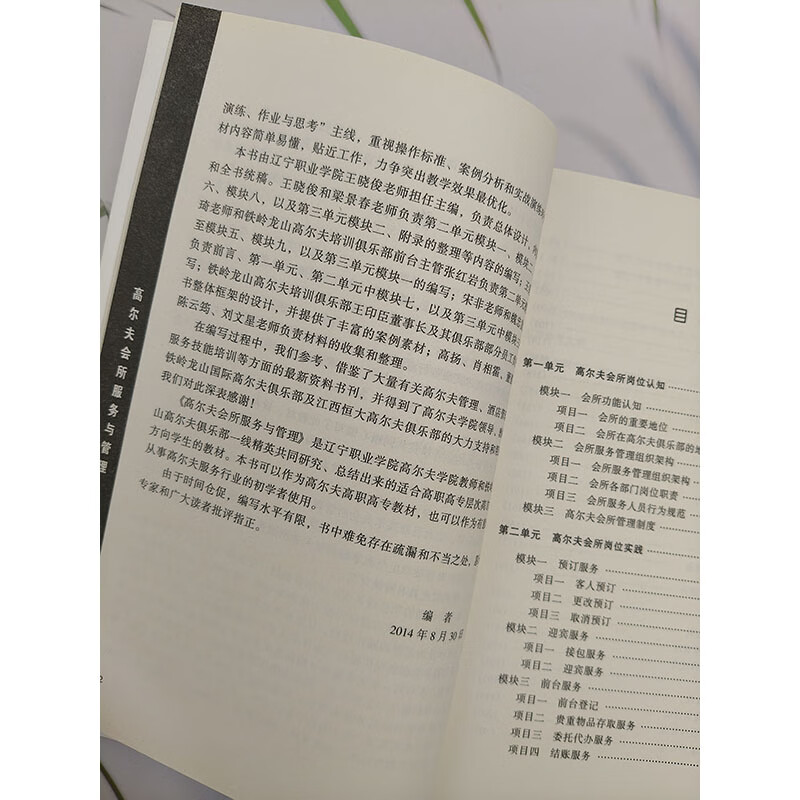 演练、作业与思考”主线，重视操作标准、案例分析和实战演练
材内容简单易懂，贴近工作，力争突出教学效果最优化。
本书由辽宁职业学院王晓俊老师担任主编，负责总体设计，
和全书统稿。王晓俊和梁景春老师负责第二单元模块一、模块二
六、模块八，以及第三单元模块二、附录的整理等内容的编写；
琦老师和铁岭龙山高尔夫培训俱乐部前台主管张红岩负责第二单元
至模块五、模块九，以及第三单元模块一的编写；宋非老师和
负责前言、第一单元、第二单元中模块七，以及第三单元中模块
写；铁岭龙山高尔夫培训俱乐部王印臣董事长及其俱乐部部分员工
书整体框架的设计，并提供了丰富的案例素材；高扬、肖相霍、
陈云筠、刘文星老师负责材料的收集和整理。
在编写过程中，我们参考、借鉴了大量有关高尔夫管理、酒店
服务技能培训等方面的最新资料书刊，并得到了高尔夫学院领导、
铁岭龙山国际高尔夫俱乐部及江西恒大高尔夫俱乐部的大力支持和
我们对此深表感谢！
《高尔夫会所服务与管理》是辽宁职业学院高尔夫学院教师和铁
山高尔夫俱乐部一线精英共同研究、总结出来的适合高职高专层次高
方向学生的教材。本书可以作为高尔夫高职高专教材，也可以作为有
从事高尔夫服务行业的初学者使用。
由于时间仓促，编写水平有限，书中难免存在疏漏和不当之处，
专家和广大读者批评指正。
编 者
2014 年 8 月 30 日
高尔夫会所服务与管理
2
目
第一单元 高尔夫会所岗位认知
模块一 会所功能认知
项目一 会所的重要地位
项目二 会所在高尔夫俱乐部的地
模块二 会所服务管理组织架构
项目一 会所服务管理组织架构
项目二 会所各部门岗位职责
项目三 会所服务人员行为规范
模块三 高尔夫会所管理制度
第二单元 高尔夫会所岗位实践
模块一 预订服务
项目一 客人预订
项目二 更改预订
项目三 取消预订
模块二 迎宾服务
项目一 接包服务
项目二 迎宾服务
模块三 前台服务
项目一 前台登记
项目二 贵重物品存取服务
项目三 委托代办服务
项目四 结账服务